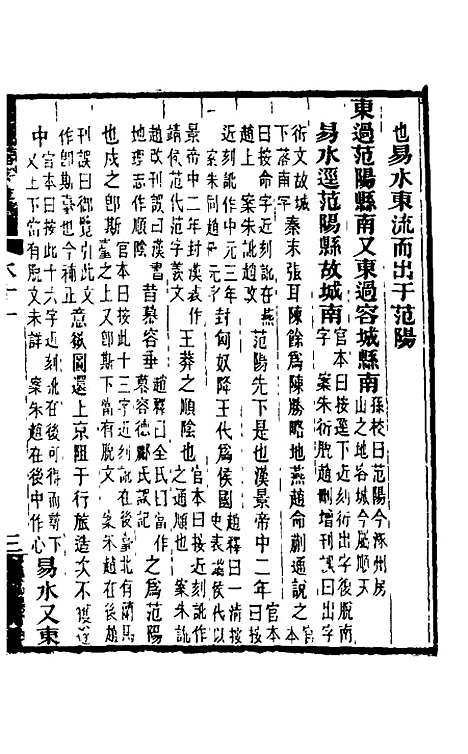 也易水東流而出于范陽
東過范陽縣南又東過容城縣南孫校曰范陽今涿州房山之地容城今屬順天
易水逕范陽縣故城南官本曰按逕下近刻衍出字脫南字 案朱衍脫趙刪增刊誤曰出字
衍文故城下落南字秦末張耳陳餘為陳勝略地燕趙命蒯通說之官本
曰按命字近刻訛在燕趙上 案朱訛趙改范陽先下是也漢景帝中二年官本曰按
近刻訛作中元三年 案朱同趙元字封匈奴降王代為侯國趙釋曰一清按史表後代以
景帝中二年封漢表作靖侯范代王莽之順陰也官本曰按近刻訛作之通順也 案朱訛
趙改刊誤曰漢書地理志作順陰昔慕容垂趙釋曰全氏曰當作慕容德酈氏誤記之為范陽
也戍之卽斯官本曰按此十三字近刻訛在後臺北有蘭馬臺之上又卽斯下當有脫文 案朱訛在後趙
刊誤曰御覽引此文作卽斯臺也今補正意欲圖還上京阻于行旅造次不獲遂
中官本曰按此十六字近刻訛在後可得而尋下又上下當有脫文未詳 案朱趙在後中作心易水又東
三